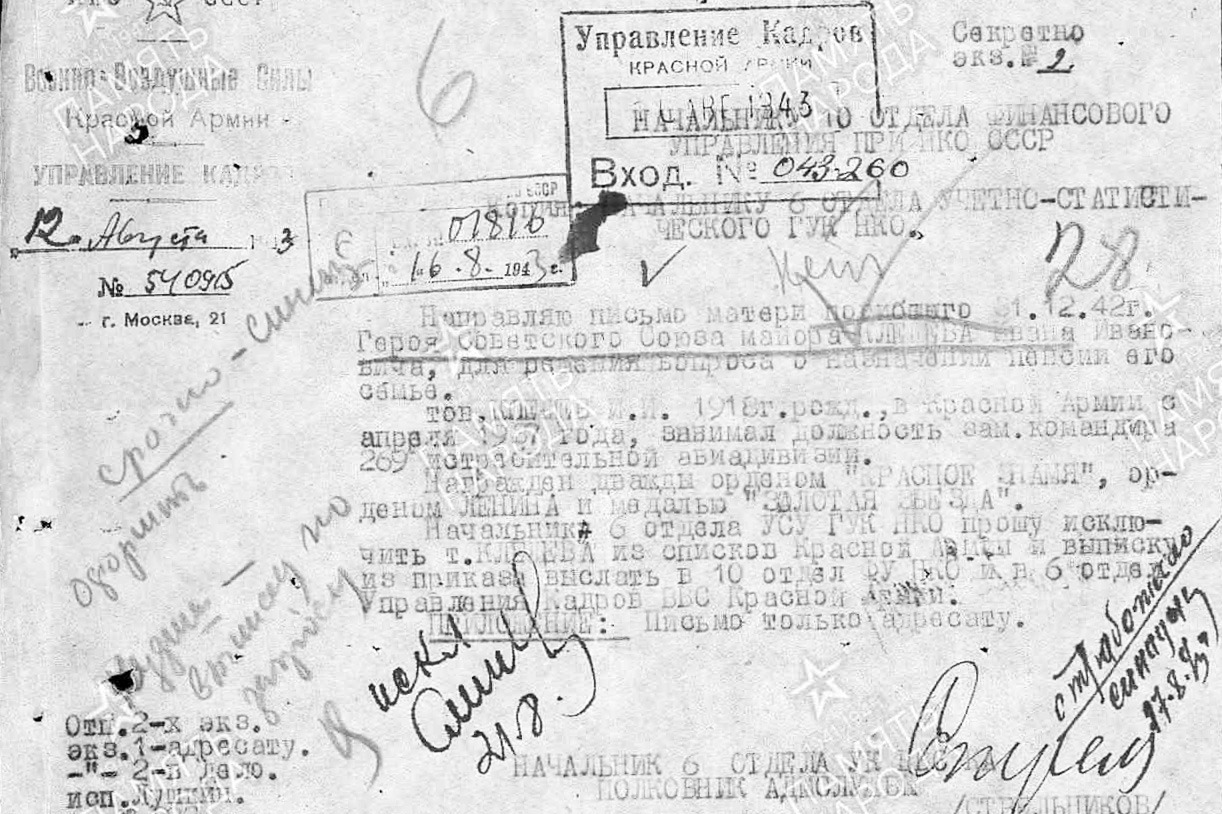 НКО СССР
Военно-Воздушные Силы
Красной Армии
УПРАВЛЕНИЕ КАДРОВ
"12" Августа 1943
№ 540915
г. Москва, 21
6
Управление Кадров
КРАСНОЙ АРМИИ
АВГ 1943
Вход. № 043260
Секретно
экз.№ 2.
НАЧАЛЬНИКУ 10 ОТДЕЛА ФИНАНСОВОГО
УПРАВЛЕНИЯ ПРИ НКО СССР
Копия: НАЧАЛЬНИКУ 6 ОТДЕЛА УЧЕТНО-СТАТИСТИ-
ЧЕСКОГО ГУК НКО.
01816
"16.8.1943 г.
28
Направляю письмо матери погибшего 31.12.42г.
Героя Советского Союза майора КЛЕЩЕВА Ивана Ивано-
вича, для решения вопроса о назначении пенсии его
семье.
тов.КЛЕЩЕВ И.И. 1918г.рожд.,в Красной Армии с
апреля 1937 года, занимал должность зам.командира
269 истребительной авиадивизии.
Награжден дважды орденом "КРАСНОЕ ЗНАМЯ", ор-
деном ЛЕНИНА и медалью "ЗОЛОТАЯ ЗВЕЗДА".
Начальника 6 отдела УСУ ГУК НКО прошу исклю-
чить т.КЛЕЩЕВА из списков Красной Армии и выписку
из приказа выслать в 10 отдел ФУ НКО и в 6 отдел
Управления Кадров ВВС Красной Армии.
ПРИЛОЖЕНИЕ: Письмо только адресату.
срочно
нужна
выписку по
запросу
21.8.
27.8.43
Отп.2-х экз.
экз.1-адресату.
-"- 2-в дело.
исп.
НАЧАЛЬНИК 6 ОТДЕЛА УК ВВС КА
ПОЛКОВНИК
/СТРЕЛЬНИКОВ/
ПАМЯТЬ
НАРОДА